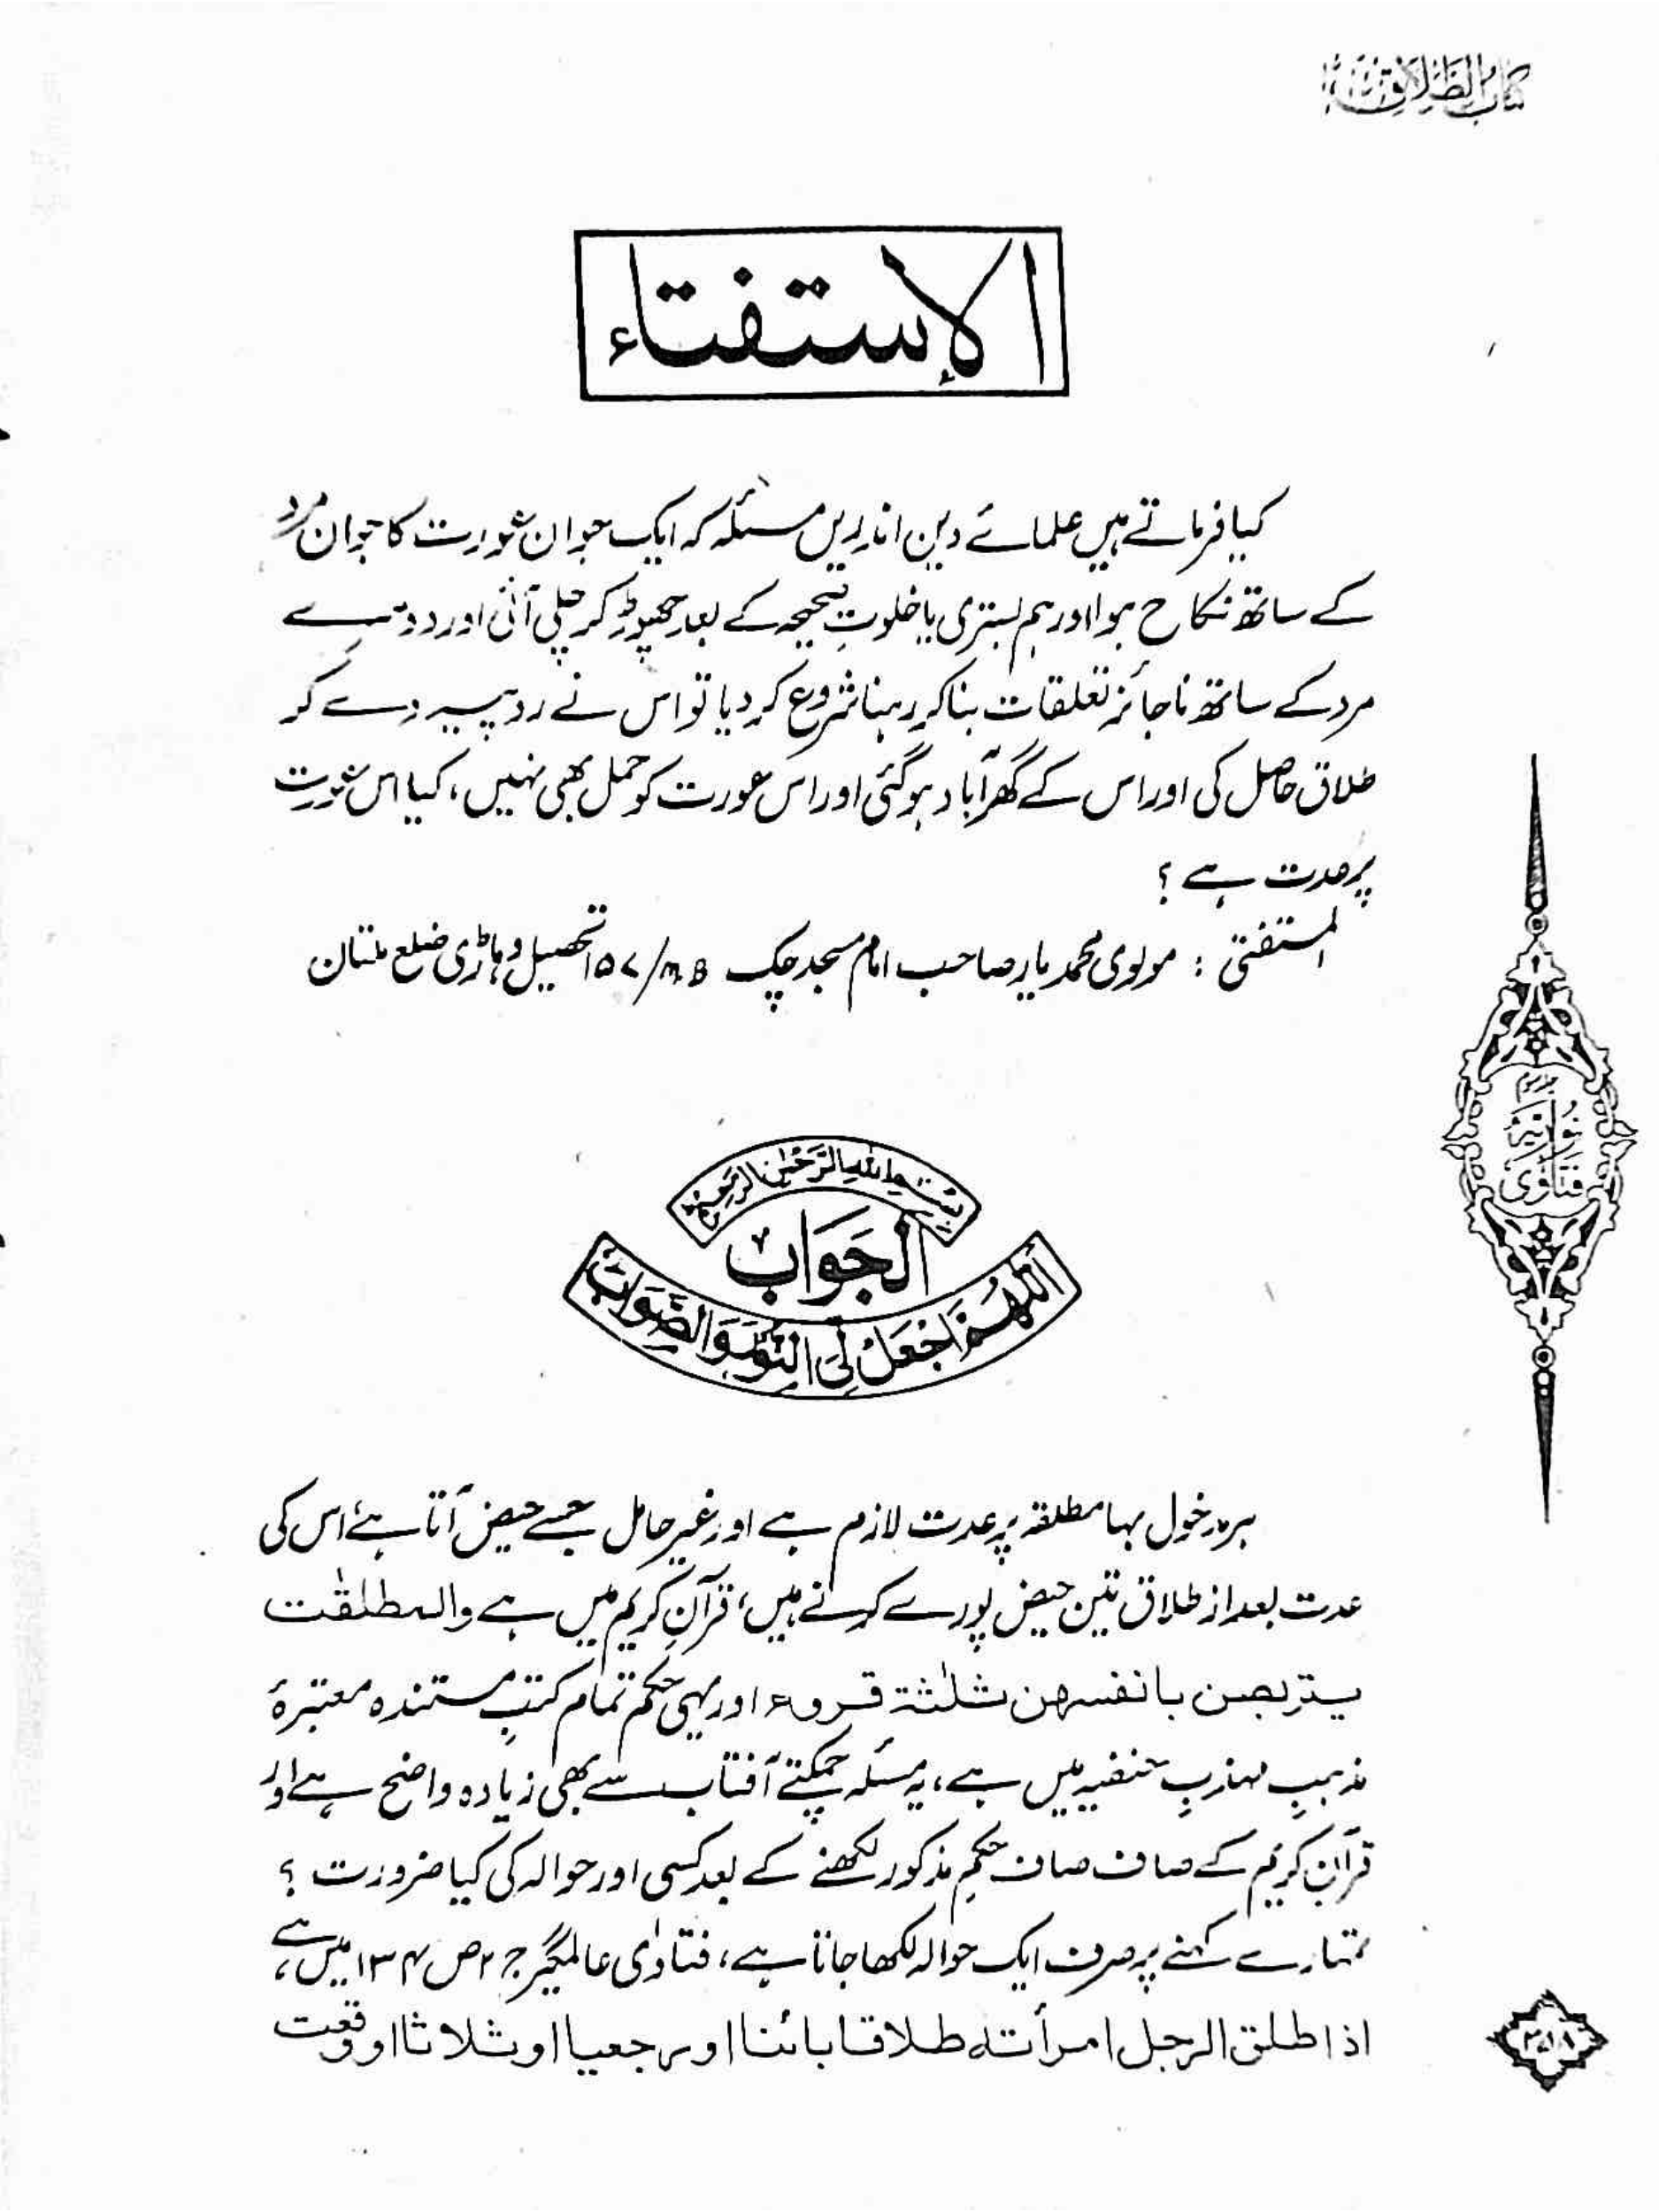 کتاب الطلاق
الإستفتاء
کیا فرماتے ہیں علمائے دین اندریں مسئلہ کہ ایک جوان عورت کا جوان مرد
کے ساتھ نکاح ہوا اور ہم بستری یا خلوتِ صحیحہ کے بعد چھوڑ کر چلی آئی اور دوسرے
مرد کے ساتھ ناجائز تعلقات بنا کر رہنا شروع کر دیا تو اس نے روپیہ دے کر
طلاق حاصل کی اور اس کے گھر آباد ہوگئی اور اس عورت کو حمل بھی نہیں، کیا اس عورت
پر عدت ہے ؟
المستفتی : مولوی محمد یار صاحب امام مسجد چک ۱۵۷/M.B تحصیل وہاڑی ضلع ملتان
بسم اللہ الرحمن الرحیم
الجَوَاب
اللّٰهُمَّ اجْعَلْ لِیَ النُّوْرَ وَالصَّوَابَ
ہر مدخول بہا مطلقہ پر عدت لازم ہے اور غیر حامل جسے حیض آتا ہے اس کی
عدت بعد از طلاق تین حیض پورے کرنے ہیں، قرآنِ کریم میں ہے والمطلقٰت
یتربصن بانفسهن ثلٰثة قروء اور یہی حکم تمام کتبِ مستندہ معتبرۂ
مذہبِ مہذبِ حنفیہ میں ہے، یہ مسئلہ چمکتے آفتاب سے بھی زیادہ واضح ہے اور
قرآنِ کریم کے صاف صاف حکمِ مذکور لکھنے کے بعد کسی اور حوالہ کی کیا ضرورت ؟
تمہارے کہنے پر صرف ایک حوالہ لکھا جاتا ہے، فتاوٰی عالمگیر ج ۲ ص ۱۳۴ میں ہے،
اذا طلق الرجل امرأته طلاقا بائنا او رجعیا او ثلاثا او وقعت
فتاوٰی نوریہ